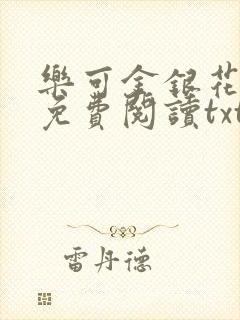 樂可金銀花
免費閱讀txt
雷丹德